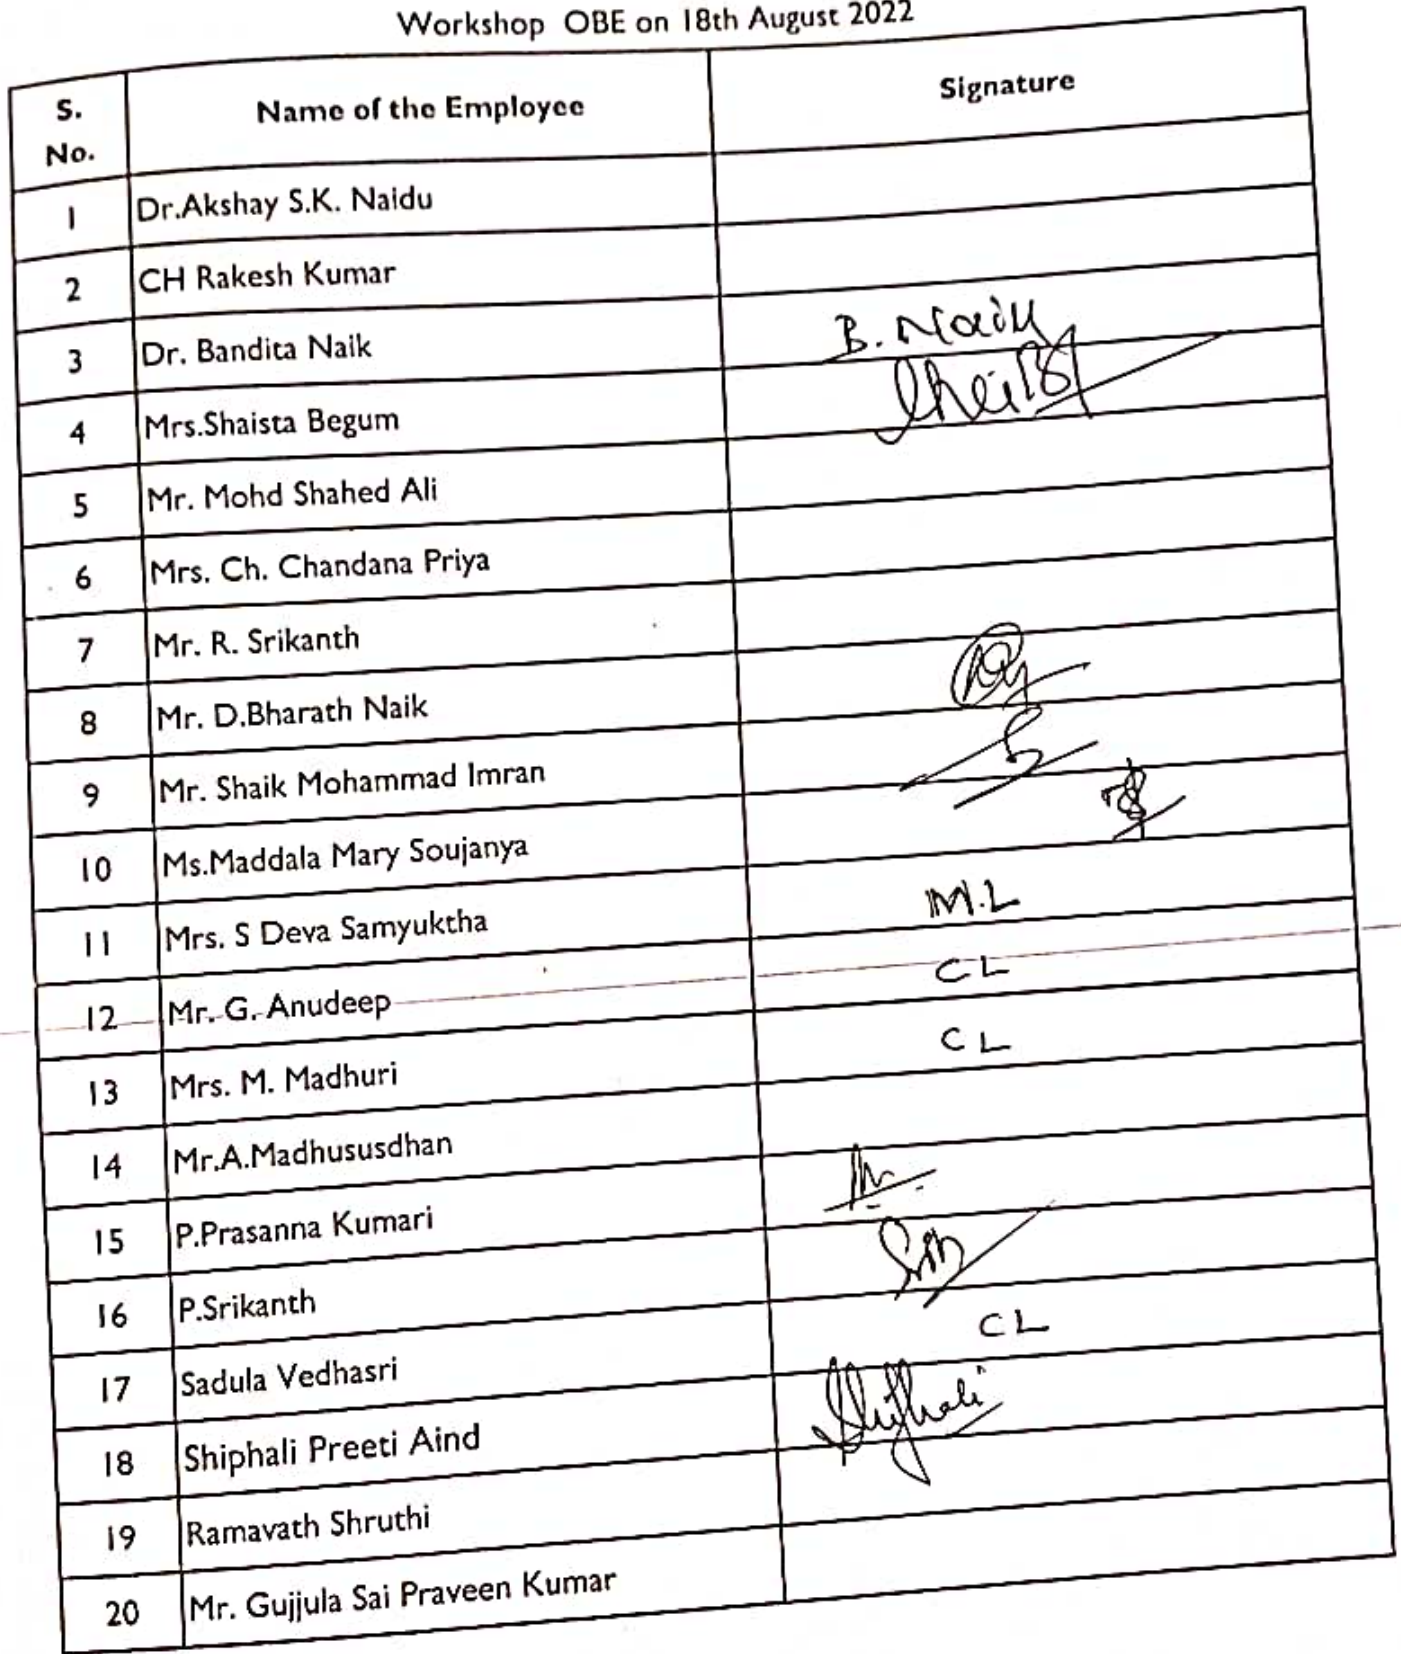 Workshop OBE on 18th August 2022
S. No. Name of the Employee Signature
1 Dr.Akshay S.K. Naidu
2 CH Rakesh Kumar
3 Dr. Bandita Naik B. Naik
4 Mrs.Shaista Begum
5 Mr. Mohd Shahed Ali
6 Mrs. Ch. Chandana Priya
7 Mr. R. Srikanth
8 Mr. D.Bharath Naik
9 Mr. Shaik Mohammad Imran
10 Ms.Maddala Mary Soujanya
11 Mrs. S Deva Samyuktha M.L
12 Mr. G. Anudeep CL
13 Mrs. M. Madhuri CL
14 Mr.A.Madhususdhan
15 P.Prasanna Kumari
16 P.Srikanth
17 Sadula Vedhasri CL
18 Shiphali Preeti Aind Shiphali
19 Ramavath Shruthi
20 Mr. Gujjula Sai Praveen Kumar